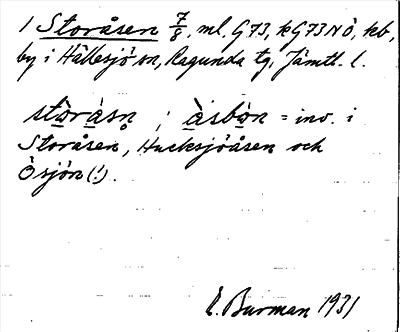 1 Storåsen 7/8, ml. G73, k G73NÖ, kb,
by i Hällesjö sn, Ragunda tg, Jämtl. l.
stòràsn ; àsbòn = inv. i
Storåsen, Hucksjöåsen och
Ösjön (!).
E. Burman 1931